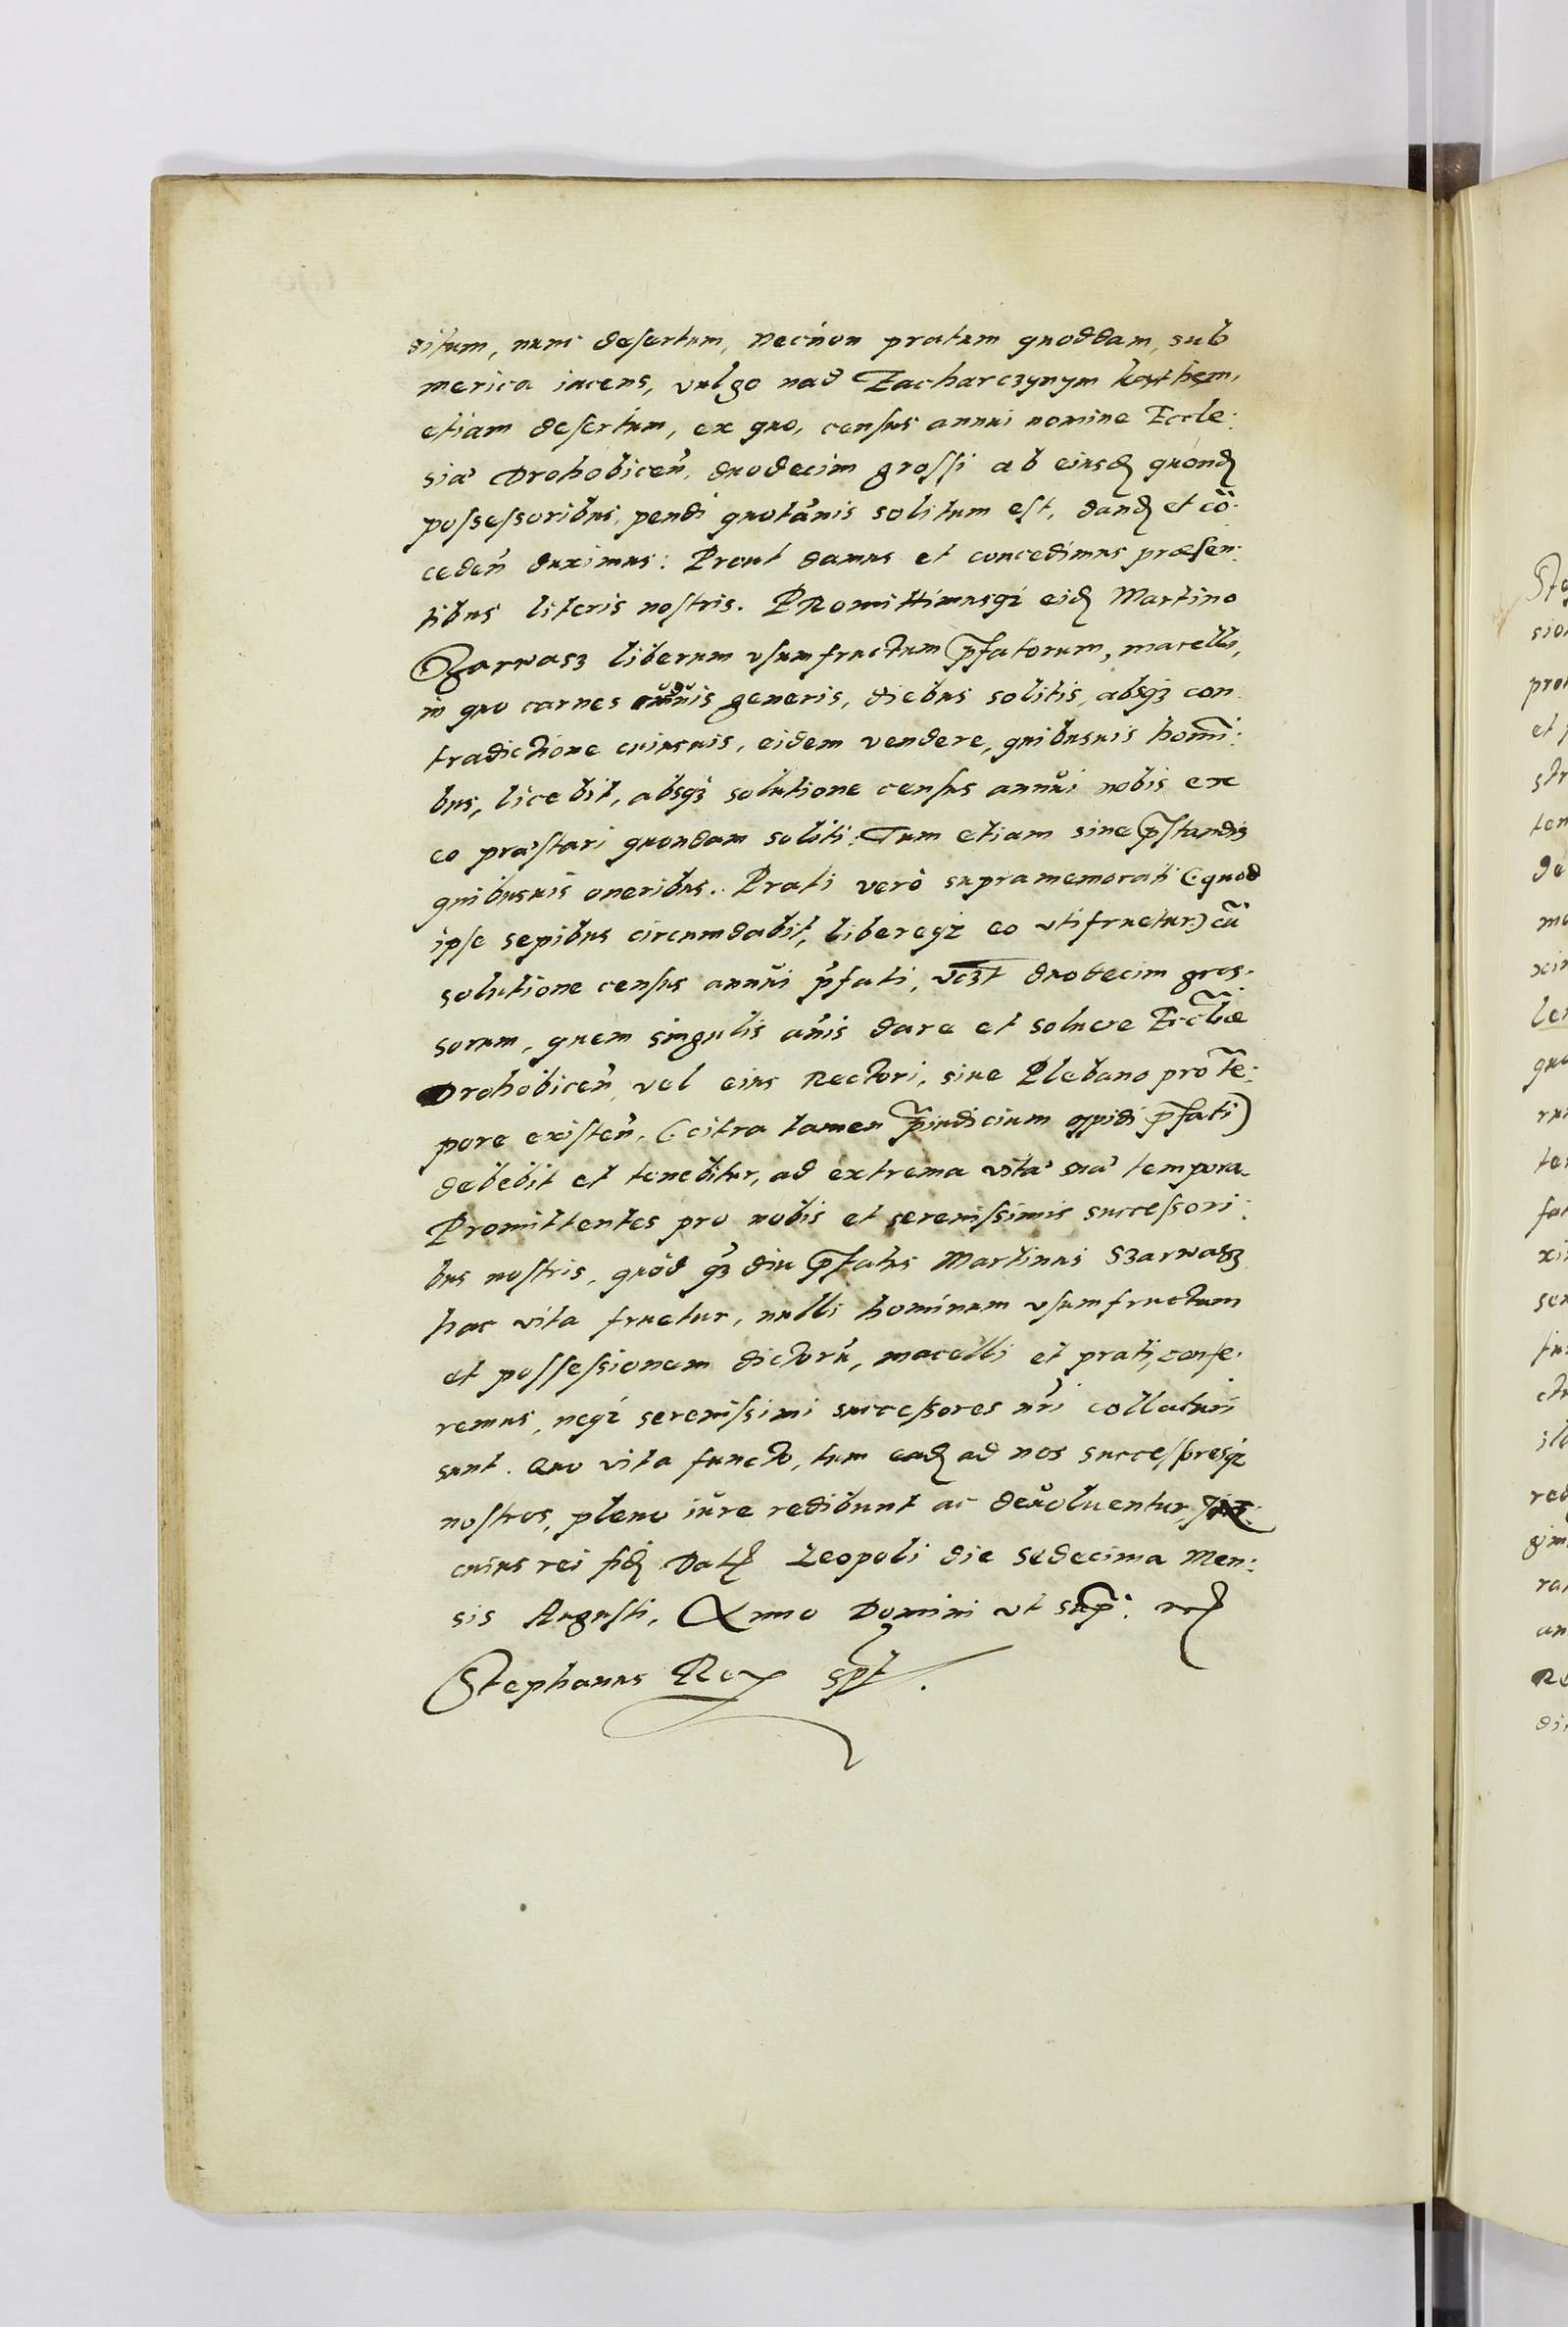 situm, nunc desertum, necnon pratum quoddam, sub
merica iacens, vulgo nad Zacharczynym kąthem,
etiam desertum, ex quo, census annui nomine Eccle:
siæ Drohobicen̄, duodecim grossi ab eiusd quond
possessoribus, pendi quotānis solitum est, dand et cō:
ceden̄ duximus: Prout damus et concedimus præsen:
tibus literis nostris. Promittimusq; eid Martino
Szarwasz liberum vsumfructum p̄fatorum, macelli,
in quo carnes generis, diebus solitis, absq; con
tradictione cuiusuis, eidem vendere, quibusuis homi:
bus, licebit, absq; solutione census annui nobis ex
eo præstari quondam soliti: Tum etiam sine p̄standis
quibusuis oneribus. Prati verò supramemorati (quod
ipse sepibus circumdabit, libereq; eo vtifruetur) cū
solutione census annui p̄fati, vczt duodecim gros:
sorum, quem singulis an̄is dare et soluere Eccl̄iæ
Drohobicen̄, vel eius Rectori, siue Plebano pro te:
pore existen̄, (citra tamen p̄iudicium oppidi p̄fati)
debebit et tenebitur, ad extrema vitæ suæ tempora.
Promittentes pro nobis et serenissimis successori:
bus nostris, quòd q̄diu p̄fatus Martinus Szarwasz
hac vita fruetur, nulli hominum vsumfructum
et possessionem dictorū, macelli et prati, confe:
remus, neq; serenissimi successores nr̄i collaturi
sunt. Quo vita functo, tum ead ad nos successoresq;
nostros, pleno iure redibunt ac deuoluentur,
cuius rei fid Dat Leopoli die sedecima Men:
sis Augusti, Anno Domini vt sup̄.
Stephanus Rex spt.